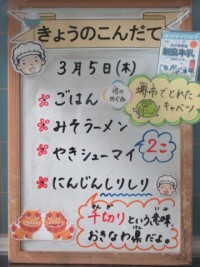 きょうのこんだて
3月5日(木)
ごはん
堺市でとれた
キャベツ
みそラーメン
やきシューマイ
2こ
にんじんしりしり
千切りという意味
おきなわ県だよ。